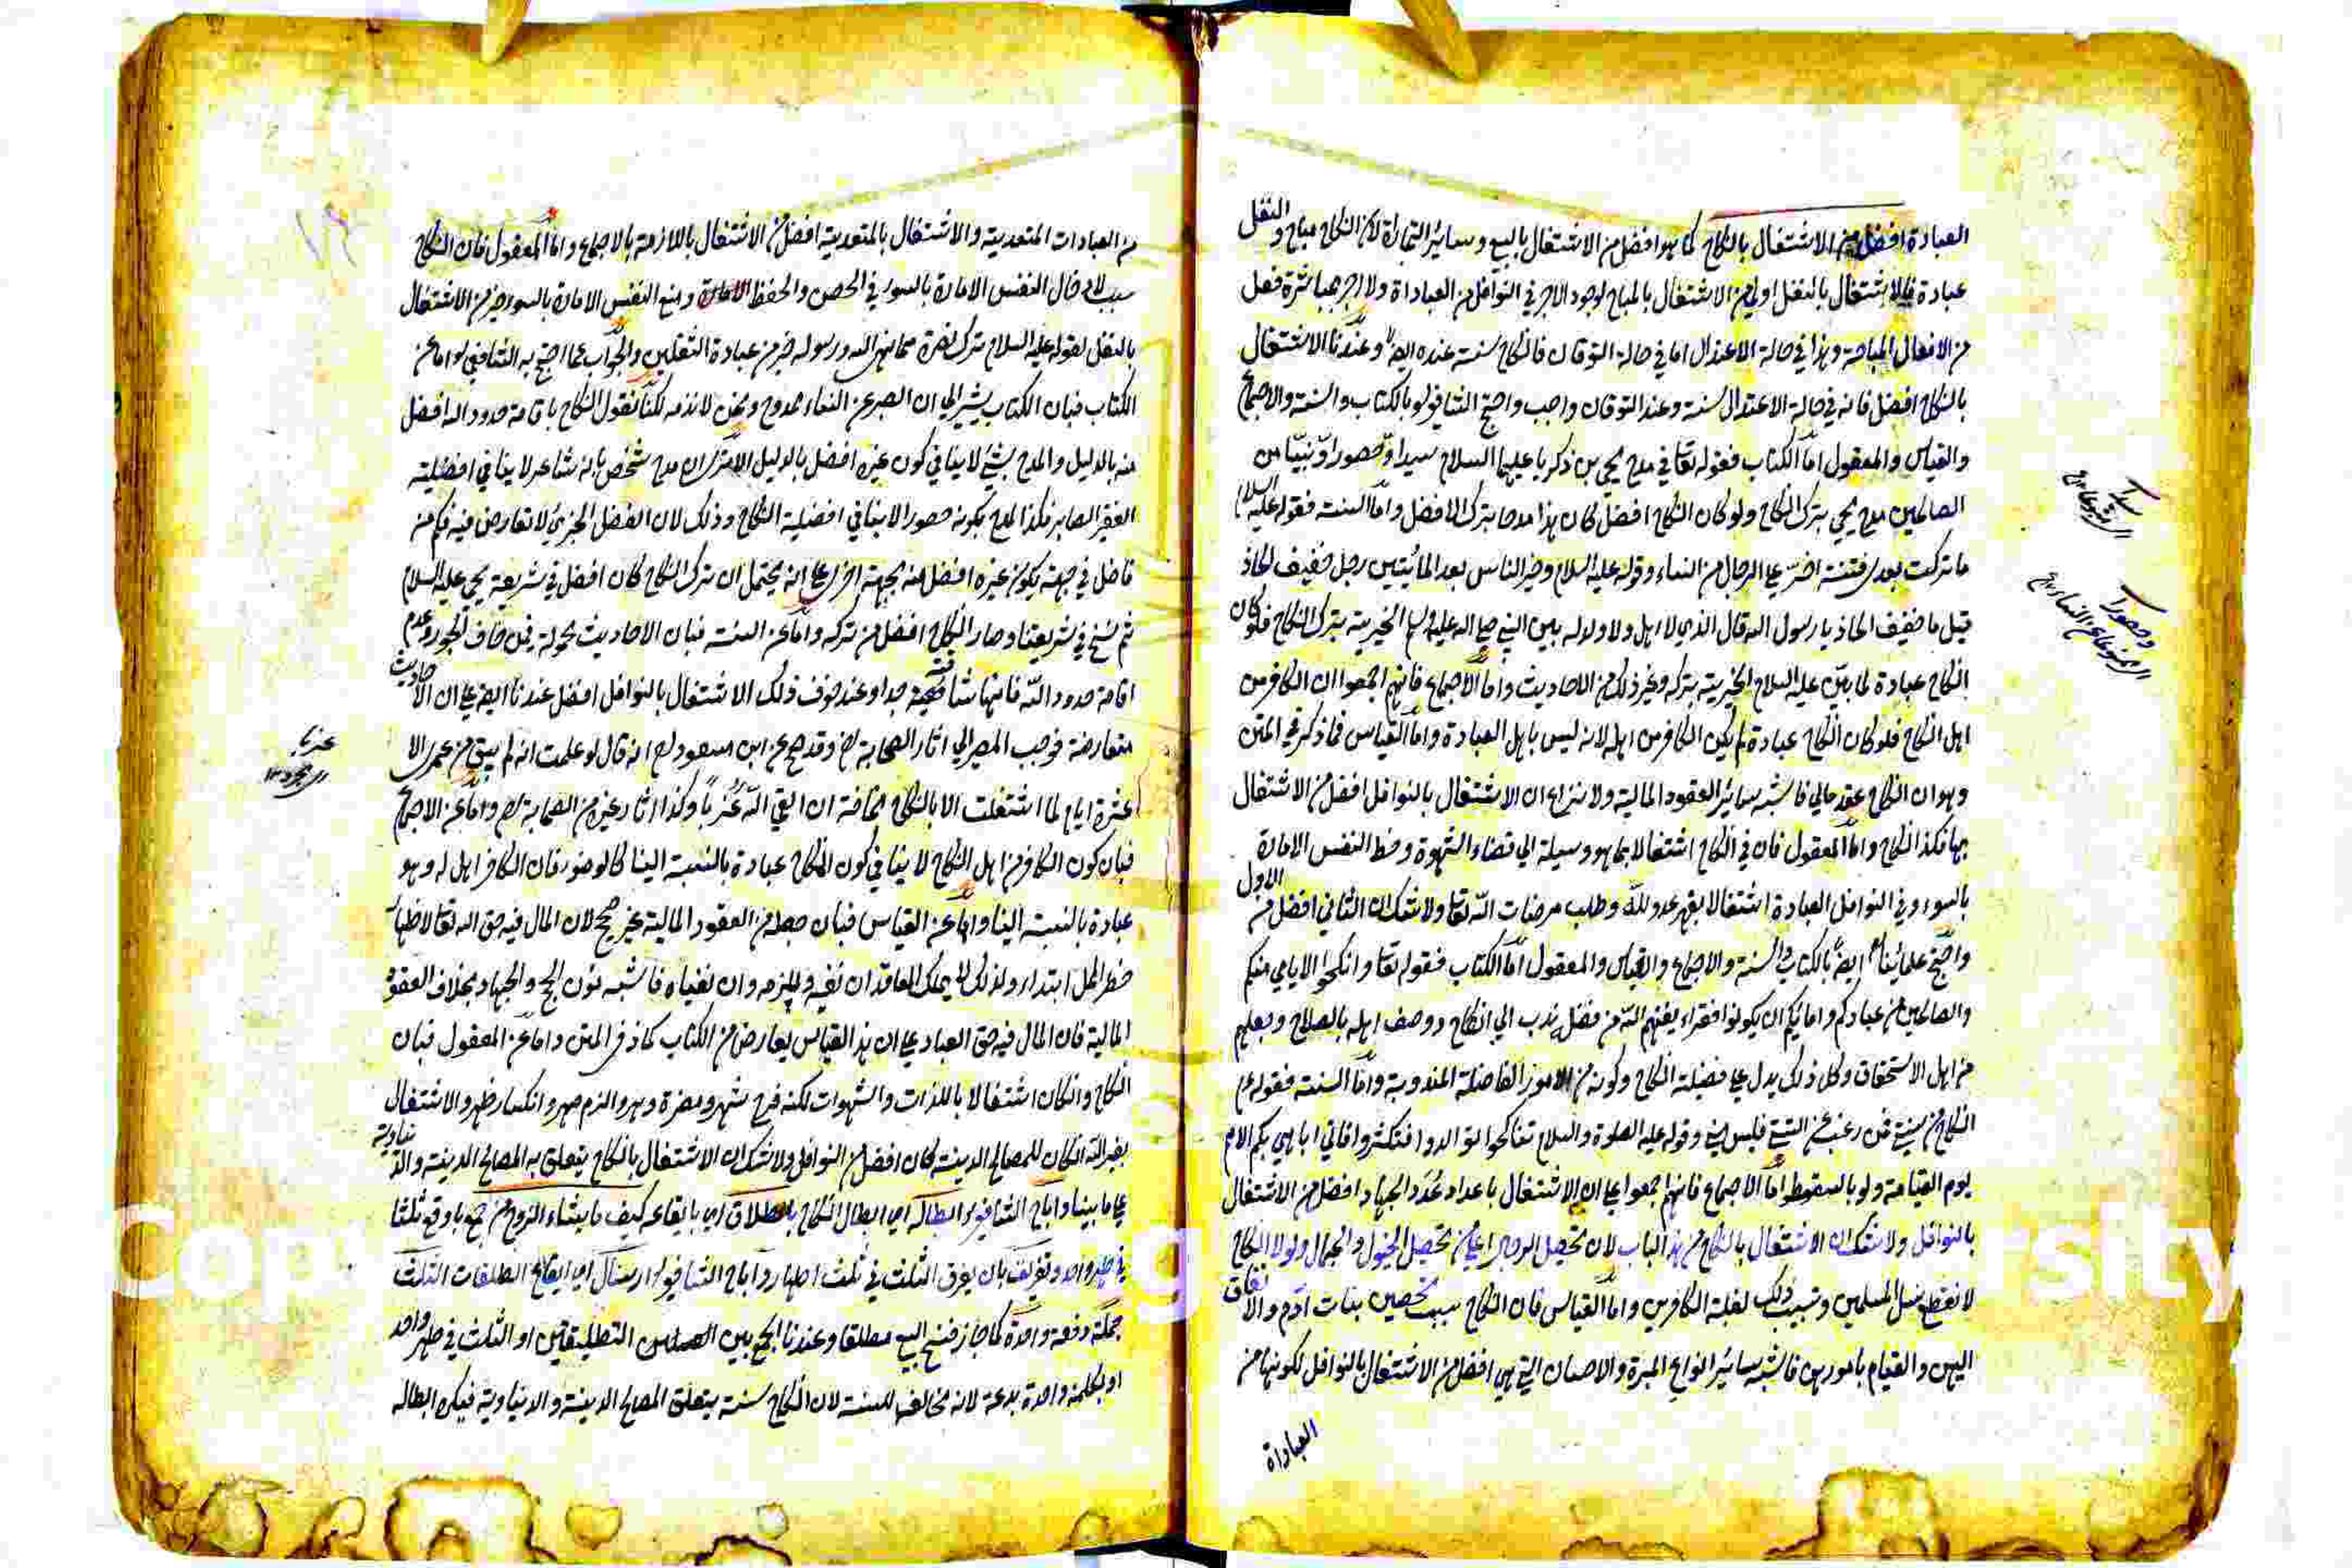 العبادة افضل من الاشتغال بالنكاح كما هو افضل من الاشتغال بالبيع وسائر التجارة لان النكاح مباح والنفل
عبادة فالاشتغال بالنفل اولى من الاشتغال بالمباح لوجود الاجر في النوافل من العباداة ولا اجر بمباشرة فعل
من الافعال المباحة وهذا في حالة الاعتدال اما في حالة التوقان فالنكاح سنة عنده ايضا وعندنا الاشتغال
بالنكاح افضل فانه في حالة الاعتدال سنة وعند التوقان واجب واحتج الشافعي بالكتاب والسنة والاجماع
والقياس والمعقول اما الكتاب فقوله تعا في مدح يحيى بن زكريا عليهما السلام سيدا وحصورا ونبيا من
الصالحين مدح يحيى بترك النكاح ولو كان النكاح افضل لكان هذا مدحا بترك الافضل واما السنة فقوله عليه السلام
ما تركت بعدي فتنة اضر على الرجال من النساء وقوله عليه السلام وخير الناس بعد المأتين رجل خفيف الحاذ
قيل ما خفيف الحاذ يا رسول الله قال الذي لا اهل ولا ولد له بين النبي صلى الله عليه وسلم الخيرية بترك النكاح فلو كان
النكاح عبادة لما بين عليه السلام الخيرية بتركه وغير ذلك من الاحاديث واما الاجماع فانهم اجمعوا ان الكافر من
اهل النكاح فلو كان النكاح عبادة لم يكن الكافر من اهله لانه ليس باهل العبادة واما القياس فما ذكر في المتن
وهو ان النكاح عقد مالي فاشبه سائر العقود المالية ولا نزاع ان الاشتغال بالنوافل افضل من الاشتغال
بها فكذا النكاح واما المعقول فان في النكاح اشتغالا بما هو وسيلة الى قضاء الشهوة وحظ النفس الامارة
بالسوء وفي النوافل العبادة اشتغالا بقهر عدو لله وطلب مرضات الله تعا ولا شك ان الثاني افضل من الاول
واحتج علمائنا ايضا بالكتاب والسنة والاجماع والقياس والمعقول اما الكتاب فقوله تعا وانكحوا الايامى منكم
والصالحين من عبادكم وامائكم ان يكونوا فقراء يغنهم الله من فضله ندب الى النكاح ووصف اهله بالصلاح وجعلهم
من اهل الاستحقاق وكل ذلك يدل على فضيلة النكاح وكونه من الامور الفاضلة المندوبة واما السنة فقوله عم
النكاح من سنتي فمن رغب عن سنتي فليس مني وقوله عليه الصلوة والسلام تناكحوا توالدوا فتكثروا فاني اباهي بكم الامم
يوم القيامة ولو بالسقط واما الاجماع فانهم اجمعوا على ان الاشتغال باعداد عدد الجهاد افضل من الاشتغال
بالنوافل ولا شك ان الاشتغال بالنكاح من هذا الباب لان تحصيل الرجال اعلى من تحصيل الخيول والجمال ولولا النكاح
لانقطع نسل المسلمين وتسبب ذلك لغلبة الكافرين واما القياس فان النكاح سبب تحصين بنات آدم والانفاق
اليهن والقيام بامورهن فاشبه سائر انواع المبرة والاحسان التي هي افضل من الاشتغال بالنوافل لكونها من
العباداة
من العبادات المتعدية والاشتغال بالمتعدية افضل من الاشتغال باللازمة بالاجماع واما المعقول فان النكاح
سبب لادخال النفس الامارة بالسوء في الحصن والحفظ ومنع النفس الامارة بالسوء خير من الاشتغال
بالنفل لقوله عليه السلام ترك ذرة مما نهى الله ورسوله خير من عبادة الثقلين والجواب عما احتج به الشافعي اما عن
الكتاب فبان الكتاب يشير الى ان الصبر عن النساء ممدوح ونحن لا نذمه لكنا نقول النكاح باقامة حدود الله افضل
منه بالدليل والمدح بشئ لا ينافي كون غيره افضل بالدليل الا ترى ان مدح شخص بانه شاعر لا ينافي افضلية
الفقير الصابر فكذا المدح بكونه حصورا لا ينافي افضلية النكاح وذلك لان الفضل الجزئي لا تعارض فيه فكم من
فاضل في جهة يكون غيره افضل منه بجهة اخرى على انه يحتمل ان ترك النكاح كان افضل في شريعة يحيى عليه السلام
ثم نسخ في شريعتنا وصار النكاح افضل من تركه واما عن السنة فبان الاحاديث محمولة فيمن خاف الجور وعدم
اقامة حدود الله فانها شاقة جدا وعند خوف ذلك الاشتغال بالنوافل افضل عندنا ايضا على ان الاحاديث
متعارضة فوجب المصير الى اثار الصحابة رض وقد صح عن ابن مسعود رض انه قال لو علمت انه لم يبق من عمري الا
عشرة ايام لما اشتغلت الا بالنكاح مخافة ان القى الله عزبا وكذا اثار غيره من الصحابة رض واما عن الاجماع
فبان كون الكافر من اهل النكاح لا ينافي كون النكاح عبادة بالنسبة الينا كالوضوء فان الكافر اهل له وهو
عبادة بالنسبة الينا واما عن القياس فبان جعله من العقود المالية غير صحيح لان المال فيه حق الله تعا لاظهار
خطر المحل ابتداء ولذلك لا يملك العاقدان نفيه ويلزمه وان نفياه فاشبه مؤن الحج والجهاد بخلاف العقود
المالية فان المال فيه حق العباد على ان هذا القياس يعارض من الكتاب كما ذكر في المتن واما عن المعقول فبان
النكاح وان كان اشتغالا باللذات والشهوات لكنه فرح شهر ومضرة دهر والزم مهر وانكسار ظهر والاشتغال
بغير الله ان كان للمصالح الدينية كان افضل من النوافل ولا شك ان الاشتغال بالنكاح يتعلق به المصالح الدينية والدنياوية
على ما بينا واباح الشافعي ابطاله اي ابطال النكاح بالطلاق اي بايقاعه كيف ما يشاء الزوج من جمع باوقع ثلثا
في طهر واحد وتفريق بان يفرق الثلث في ثلث اطهار واباح الشافعي ارسال اي ايقاع الطلقات الثلث
جملة دفعة واحدة كما جاز فسخ البيع مطلقا وعندنا الجمع بين التطليقتين او الثلث في طهر واحد
او بكلمة واحدة بدعة لانه مخالف للسنة لان النكاح سنة يتعلق المصالح الدينية والدنياوية فيكره ابطاله